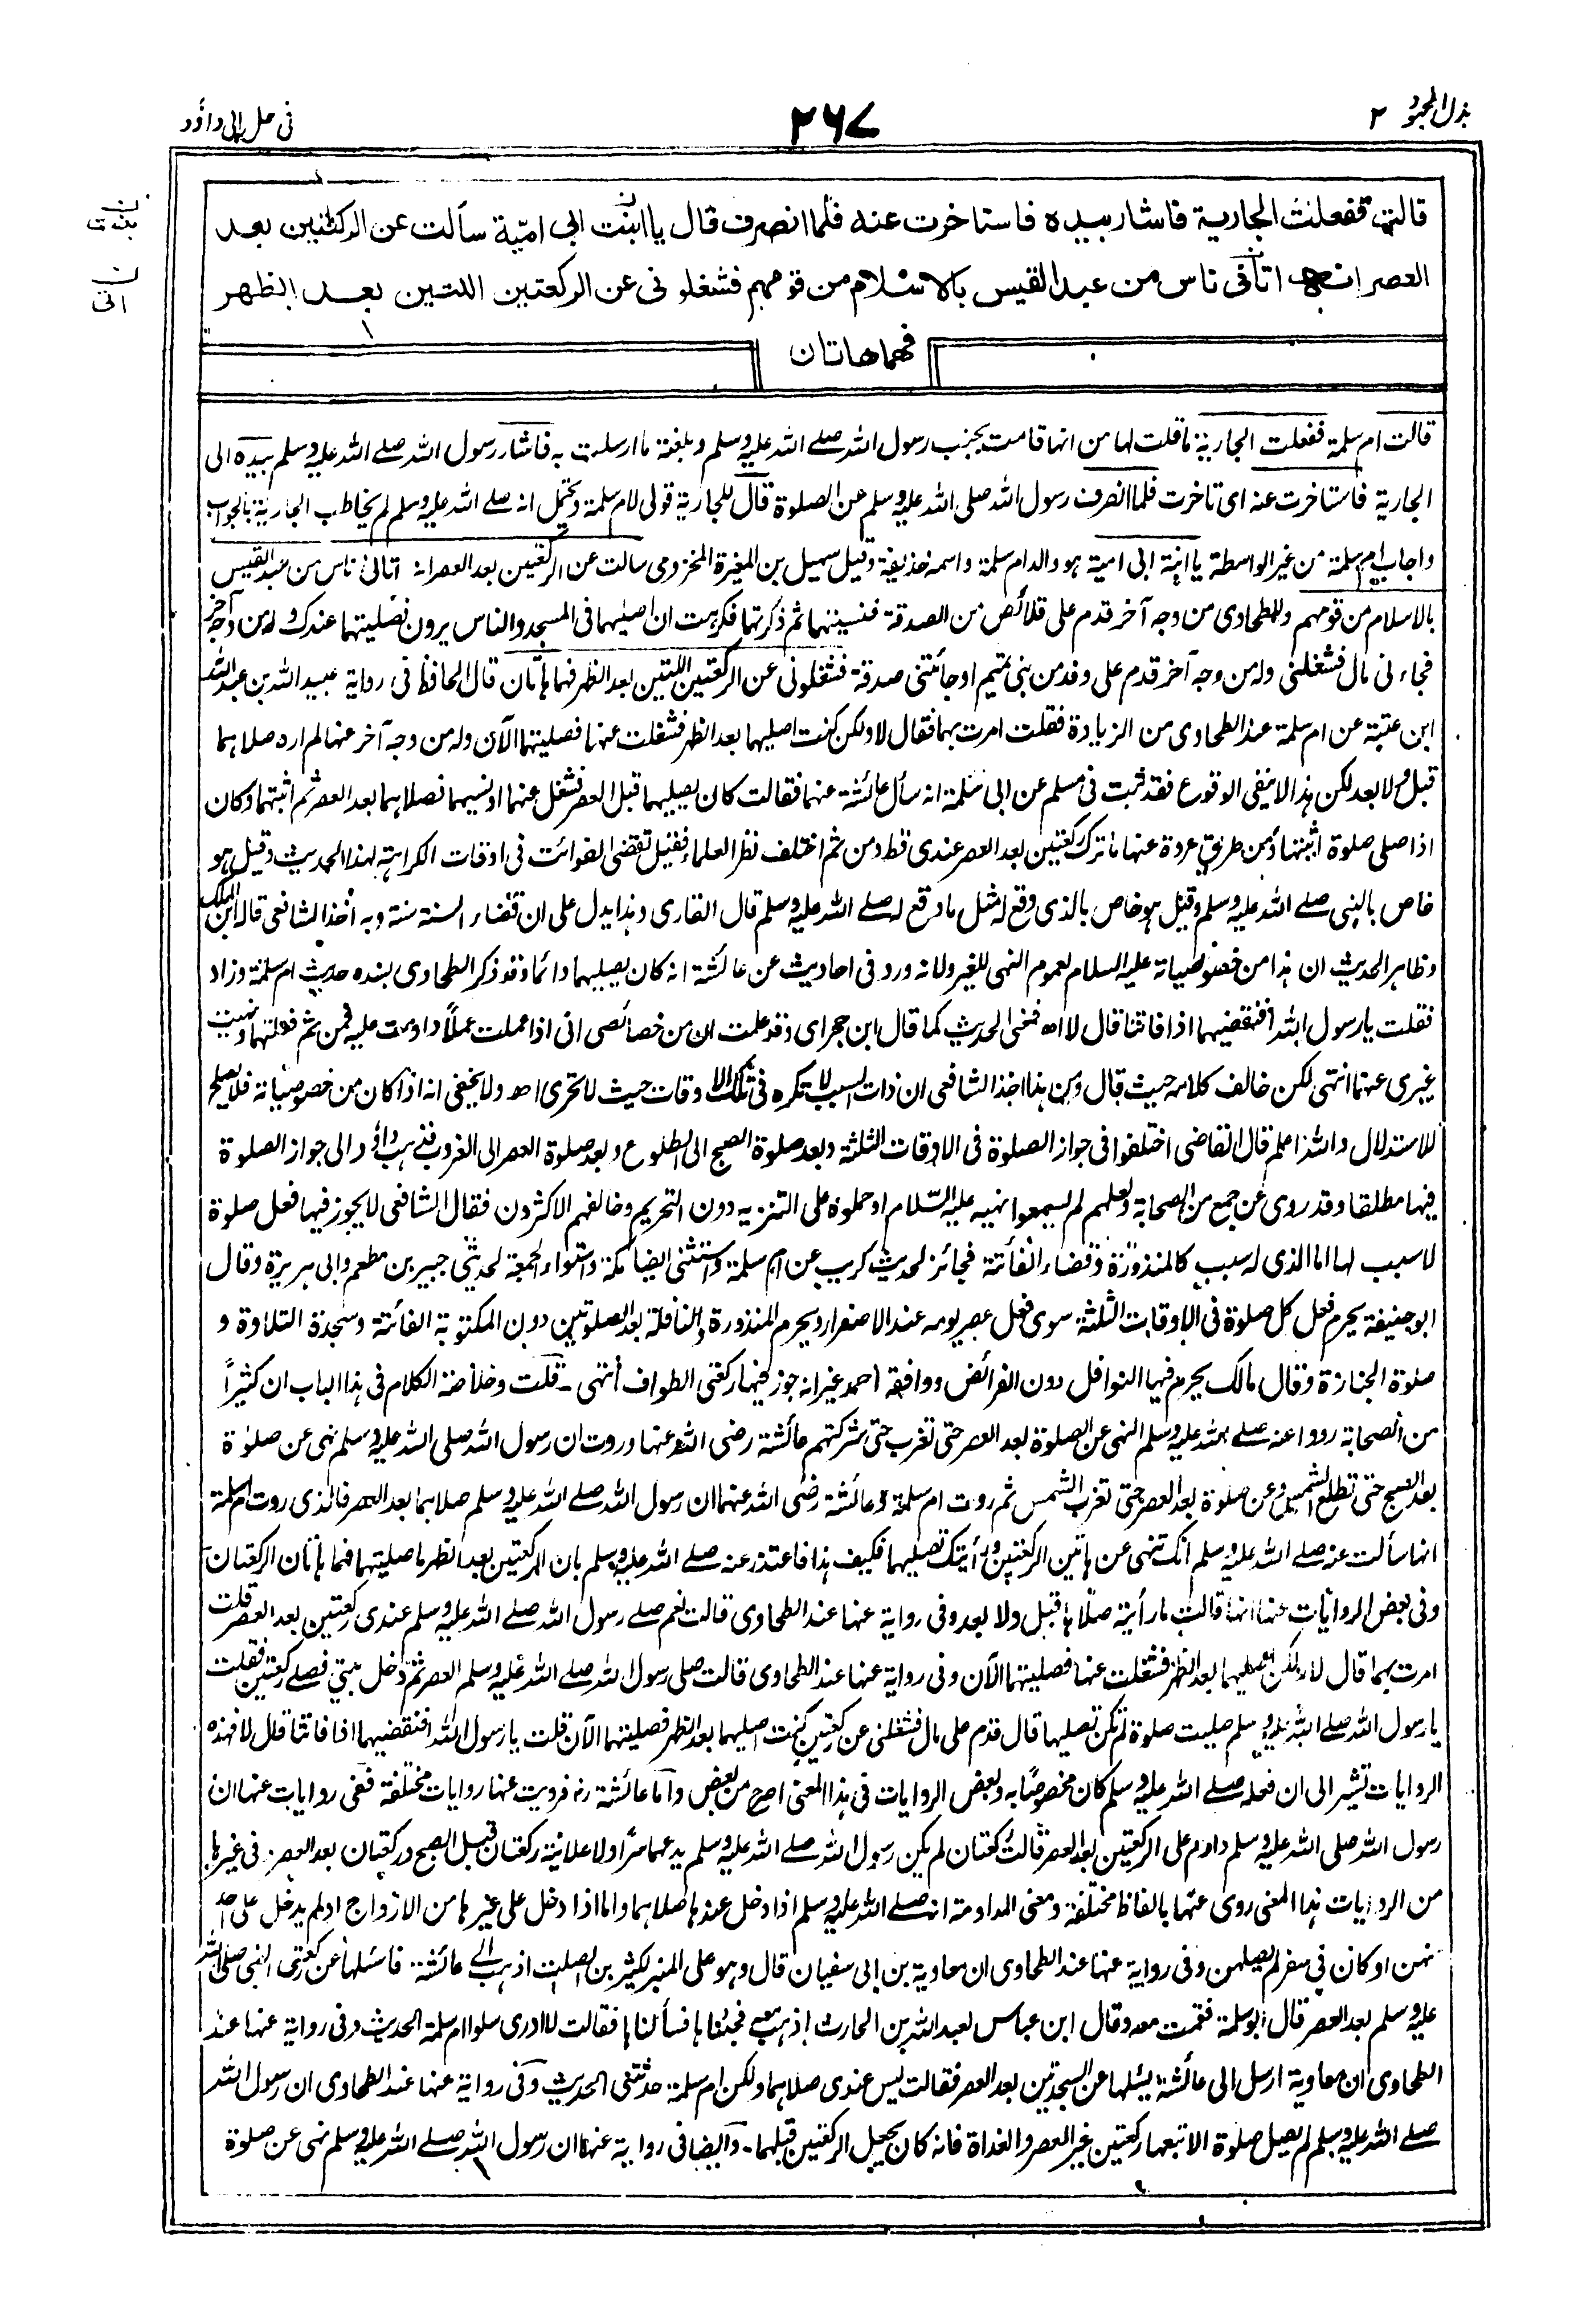 بذل المجهود ٢
٢٦٧
فى حل ابى داؤد
قالت ففعلت الجارية فاشار بيده فاستاخرت عنه فلما انصرف قال يا ابنت ابى امية سألت عن الركعتين بعد
العصر انه اتانى ناس من عبد القيس بالاسلام من قومهم فشغلونى عن الركعتين اللتين بعد الظهر
فهما هاتان
ن بنت
ن اتى
قالت ام سلمة ففعلت الجارية ما قلت لها من انها قامت بجنب رسول الله صلے الله عليه وسلم وبلغته ما ارسلت به فاشار رسول الله صلے الله عليه وسلم بيده الى
الجارية فاستاخرت عنه اى تاخرت فلما انصرف رسول الله صلى الله عليه وسلم عن الصلوة قال للجارية قولى لام سلمة ويحتمل انه صلے الله عليه وسلم لم يخاطب الجارية بالجواب
واجاب ام سلمة من غير الواسطة يا ابنة ابى امية هو والد ام سلمة واسمه حذيفة وقيل سهيل بن المغيرة المخزومى سالت عن الركعتين بعد العصر انه اتانى ناس من عبد القيس
بالاسلام من قومهم وللطحاوى من وجه آخر قدم على قلائص من الصدقة فنسيتهما ثم ذكرتهما فكرهت ان اصليهما فى المسجد والناس يرون فصليتهما عندك وله من وجه آخر
فجاءنى مال فشغلنى وله من وجه آخر قدم على وفد من بنى تميم او جائتنى صدقة فشغلونى عن الركعتين اللتين بعد الظهر فهما هاتان قال الحافظ فى رواية عبيد الله بن عبد الله
ابن عتبة عن ام سلمة عند الطحاوى من الزيادة فقلت امرت بهما فقال لا ولكن كنت اصليهما بعد الظهر فشغلت عنهما فصليتهما الآن وله من وجه آخر عنها لم اره صلاهما
قبل ولا بعد لكن هذا لا ينفى الوقوع فقد ثبت فى مسلم عن ابى سلمة انه سأل عائشة عنهما فقالت كان يصليهما قبل العصر فشغل عنهما او نسيهما فصلاهما بعد العصر ثم اثبتهما وكان
اذا صلى صلوة اثبتها ومن طريق عروة عنها ما ترك ركعتين بعد العصر عندى قط ومن ثم اختلف نظر العلماء فقيل تقضى الفوائت فى اوقات الكراهة لهذا الحديث وقيل هو
خاص بالنبى صلے الله عليه وسلم وقيل هو خاص بالذى وقع له مثل ما وقع له صلے الله عليه وسلم قال القارى وهذا يدل على ان قضاء السنة سنة وبه اخذ الشافعى قاله ابن الملك
وظاهر الحديث ان هذا من خصوصياته عليه السلام لعموم النهى للغير ولانه ورد فى احاديث عن عائشة انه كان يصليهما دائما وقد ذكر الطحاوى بسنده حديث ام سلمة وزاد
فقلت يا رسول الله افنقضيهما اذا فاتتا قال لا اه فمعنى الحديث كما قال ابن حجر اى وقد علمت ان من خصائصى انى اذا عملت عملاً داومت عليه فمن ثم فعلتهما ونهيت
غيرى عنهما انتهى لكن خالف كلامه حيث قال ومن هذا اخذ الشافعى ان ذات السبب لا تكره فى تلك الاوقات حيث لا تحرى اه ولا يخفى انه اذا كان من خصوصياته فلا يصلح
للاستدلال والله اعلم قال القاضى اختلفوا فى جواز الصلوة فى الاوقات الثلثة وبعد صلوة الصبح الى الطلوع وبعد صلوة العصر الى الغروب فذهب داؤد الى جواز الصلوة
فيها مطلقا وقد روى عن جمع من الصحابة ولعلهم لم يسمعوا نهيه عليه السلام او حملوه على التنزيه دون التحريم وخالفهم الاكثرون فقال الشافعى لا يجوز فيها فعل صلوة
لا سبب لها اما الذى له سبب كالمنذورة وقضاء الفائتة فجائز لحديث كريب عن ام سلمة واستثنى ايضا مكة واستواء الجمعة لحديثى جبير بن مطعم وابى هريرة وقال
ابو حنيفة يحرم فعل كل صلوة فى الاوقات الثلثة سوى فعل عصر يومه عند الاصفرار ويحرم المنذورة والنافلة بعد الصلوتين دون المكتوبة الفائتة وسجدة التلاوة و
صلوة الجنازة وقال مالك يحرم فيها النوافل دون الفرائض ووافقه احمد غير انه جوز فيها ركعتى الطواف انتهى ـ قلت وخلاصة الكلام فى هذا الباب ان كثيراً
من الصحابة رووا عنه صلے الله عليه وسلم النهى عن الصلوة بعد العصر حتى تغرب حتى شركتهم عائشة رضى الله عنها وروت ان رسول الله صلى الله عليه وسلم نهى عن صلوة
بعد الصبح حتى تطلع الشمس وعن صلوة بعد العصر حتى تغرب الشمس ثم روت ام سلمة وعائشة رضى الله عنهما ان رسول الله صلے الله عليه وسلم صلاهما بعد العصر فالذى روت ام سلمة
انها سألت عنه صلے الله عليه وسلم انك تنهى عن هاتين الركعتين ورأيتك تصليهما فكيف هذا فاعتذر عنه صلے الله عليه وسلم بان الركعتين بعد الظهر ما صليتهما فهما هاتان الركعتان
وفى بعض الروايات عنها انها قالت ما رأيته صلاها قبل ولا بعد وفى رواية عنها عند الطحاوى قالت نعم صلے رسول الله صلے الله عليه وسلم عندى ركعتين بعد العصر قلت
امرت بهما قال لا ولكن اصليهما بعد الظهر فشغلت عنهما فصليتهما الآن وفى رواية عنها عند الطحاوى قالت صلى رسول الله صلے الله عليه وسلم العصر ثم دخل بيتى فصلے ركعتين فقلت
يا رسول الله صلے الله عليه وسلم صليت صلوة لم تكن تصليها قال قدم على مال فشغلنى عن ركعتين كنت اصليهما بعد الظهر فصليتهما الآن قلت يا رسول الله افنقضيهما اذا فاتتا قال لا فهذه
الروايات تشير الى ان فعله صلے الله عليه وسلم كان مخصوصًا به وبعض الروايات فى هذا المعنى اصرح من بعض واما عائشة رض فرويت عنها روايات مختلفة ففى روايات عنها ان
رسول الله صلى الله عليه وسلم داوم على الركعتين بعد العصر قالت ركعتان لم يكن رسول الله صلے الله عليه وسلم يدعهما سرًا ولا علانية ركعتان قبل الصبح وركعتان بعد العصر فى غيرها
من الروايات هذا المعنى روى عنها بالفاظ مختلفة ومعنى المداومة انه صلے الله عليه وسلم اذا دخل عندها صلاهما واما اذا دخل على غيرها من الازواج او لم يدخل على احد
منهن او كان فى سفر لم يصلهن وفى رواية عنها عند الطحاوى ان معاوية بن ابى سفيان قال وهو على المنبر لكثير بن الصلت اذهب الى عائشة فاسئلها عن ركعتى النبى صلى الله
عليه وسلم بعد العصر قال ابو سلمة فقمت معه وقال ابن عباس لعبد الله بن الحارث اذهب معه فجئناها فسألناها فقالت لا ادرى سلوا ام سلمة الحديث وفى رواية عنها عند
الطحاوى ان معاوية ارسل الى عائشة يسئلها عن السجدتين بعد العصر فقالت ليس عندى صلاهما ولكن ام سلمة حدثتنى الحديث وفى رواية عنها عند الطحاوى ان رسول الله
صلے الله عليه وسلم لم يصل صلوة الا تبعها ركعتين غير العصر والغداة فانه كان يجعل الركعتين قبلهما ـ وايضا فى رواية عنها ان رسول الله صلے الله عليه وسلم نهى عن صلوة